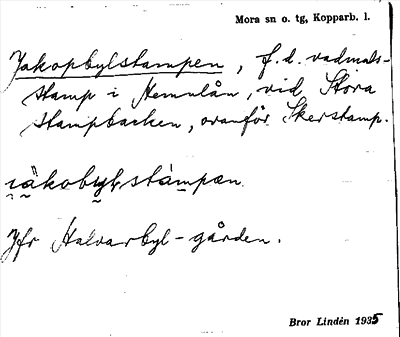 Mora sn o. tg, Kopparb. l.
Jakopbylstampen, f.d. vadmals-
stamp i Hemulån, vid Stora
Stampbacken, ovanför Skerstamp.
Jfr Halvarbyl-gården.
Bror Lindén 1935